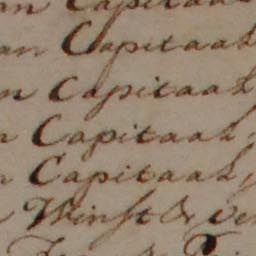 Capitaal
an Capitaal
n Capitaal
n Capitaal
Capitaal
Winst &